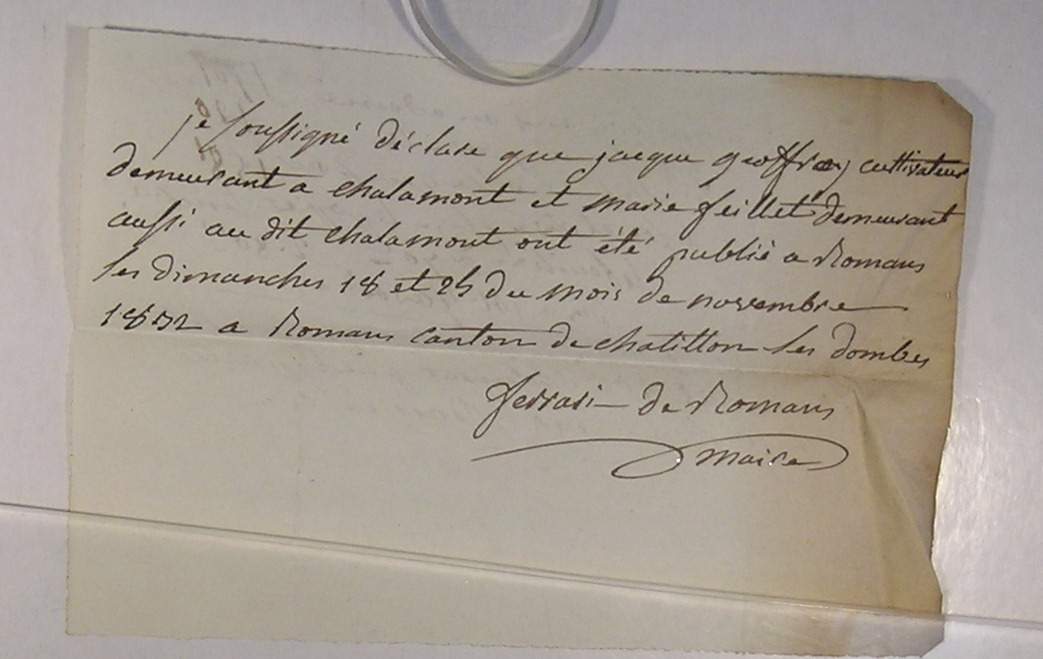 je soussigné déclare que jacque geoffray cultivateur
demeurant a chalamont et marie feillet demeurant
aussi au dit chalamont ont été publié a Romans
les dimanches 18 et 25 du mois de novembre
1832 a Romans canton de chatillon les dombes
ferrari de Romans
maire